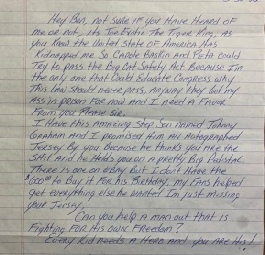 Hey Ben, not sure if you Have Heard of
me or not, its Joe Exotic The Tiger King, as
you know the United State of America Has
Kidnapped me So Carole Baskin and Peta could
Try to pass the Big Cat Safety Act Because Im
the only one that Could Educate Congress why
This law should never pass, anyway they put my
ass in prison for now and I need a Favor
From you Please Sir.
I Have this amazing Step Son named Johnny
Graham and I promised Him an Autographed
Jersey By you Because he thinks you are the
Shit and he Holds you on a pretty Big Pedistal.
There is one on eBay But I don't Have the
to Buy it For his Birthday, my Fans helped
get everything else he wanted Im just missing
your Jersey.
Can you help a man out that is
Fighting For His own Freedom?
Every Kid needs a Hero and you are His!